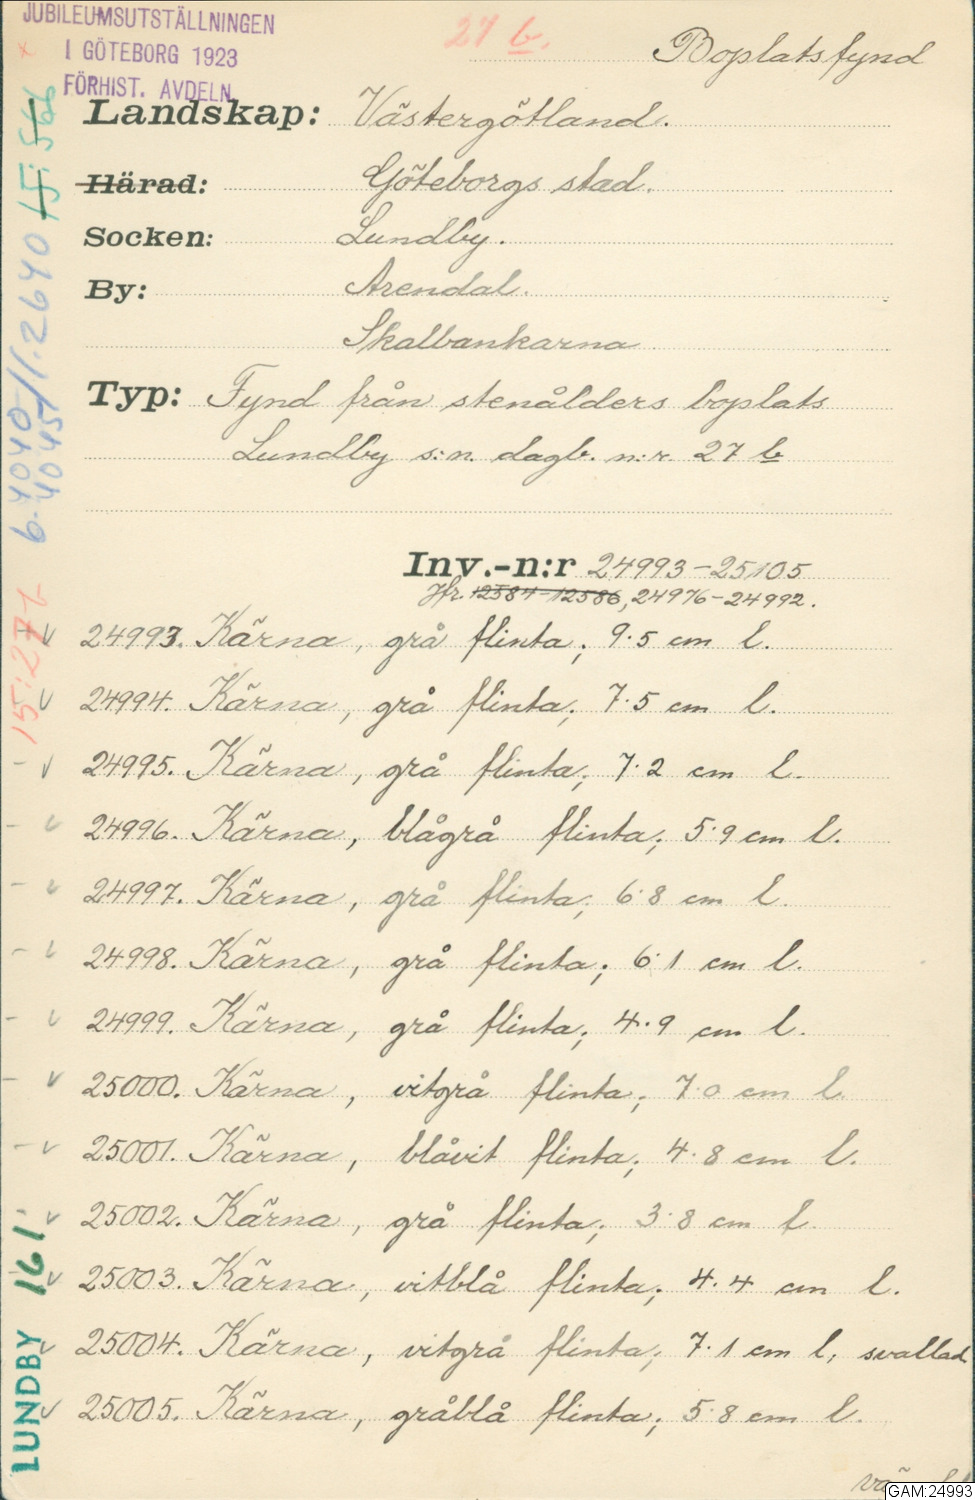 JUBILEUMSUTSTÄLLNINGEN
I GÖTEBORG 1923
FÖRHIST. AVDELN.
27 b.
Boplatsfynd
Landskap: Västergötland.
Härad: Göteborgs stad.
Socken: Lundby.
By: Arendal.
Skalbankarna
Typ: Fynd från stenålders boplats
Lundby s:n. dagb. n:r. 27 b
Inv.-n:r 24993-25105
Jfr. 12584-12586, 24976-24992.
24993. Kärna, grå flinta; 9.5 cm l.
24994. Kärna, grå flinta; 7.5 cm l.
24995. Kärna, grå flinta; 7.2 cm l.
24996. Kärna, blågrå flinta; 5.9 cm l.
24997. Kärna, grå flinta; 6.8 cm l.
24998. Kärna, grå flinta; 6.1 cm l.
24999. Kärna, grå flinta; 4.9 cm l.
25000. Kärna, vitgrå flinta; 7.0 cm l.
25001. Kärna, blåvit flinta; 4.8 cm l.
25002. Kärna, grå flinta; 3.8 cm l.
25003. Kärna, vitblå flinta; 4.4 cm l.
25004. Kärna, vitgrå flinta; 7.1 cm l, svallad.
25005. Kärna, gråblå flinta; 5.8 cm l.
LUNDBY 161
GAM:24993